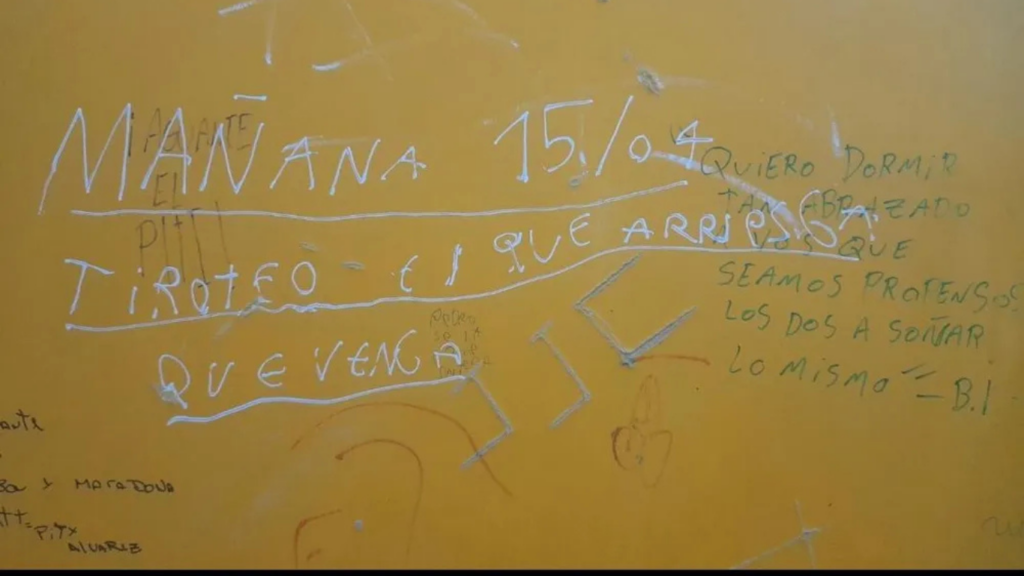 MAÑANA 15/04
TIROTEO EL QUE ARRIESGA
QUE VENGA
AGUANTE
EL
PITI
QUIERO DORMIR
TAN ABRAZADO
A VOS QUE
SEAMOS PROPENSOS
LOS DOS A SOÑAR
LO MISMO" - B.I
Y MARADONA
PITY
ALVAREZ